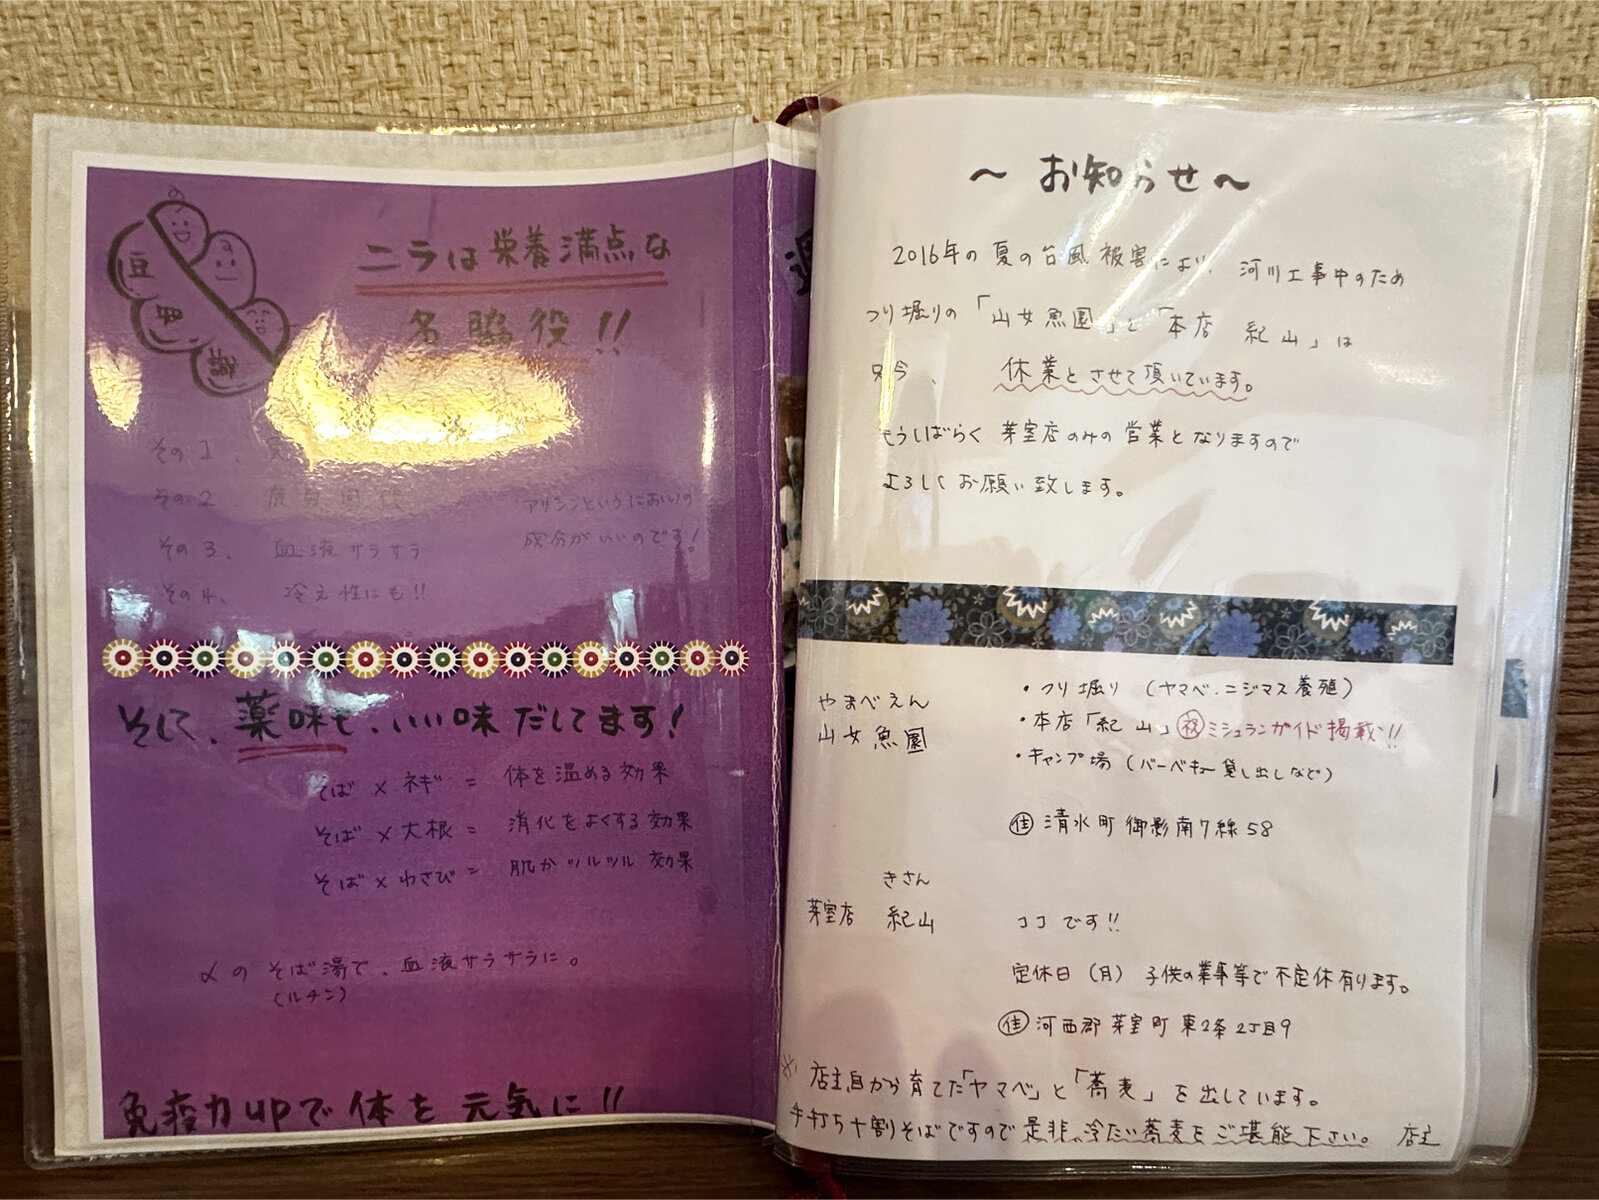 豆
知
識
ニラは栄養満点な
名脇役!!
その1、
その2 疲労回復
その3、 血液サラサラ
その4、 冷え性にも!!
アリシンというにおいの
成分がいいのです!
そして、薬味も、いい味だしてます!
そば × ネギ = 体を温める効果
そば × 大根 = 消化をよくする効果
そば × わさび = 肌がツルツル効果
〆の そば湯で、血液サラサラに。
(ルチン)
免疫力upで体を元気に!!
～ お知らせ～
2016年の夏の台風被害により、河川工事中のため
つり堀りの「山女魚園」と「本店 紀山」は
只今、 休業とさせて頂いています。
もうしばらく 芽室店のみの営業となりますので
よろしくお願い致します。
やまべえん
山女魚園
・つり堀り (ヤマベ、ニジマス養殖)
・本店「紀山」㊗ミシュランガイド掲載!!
・キャンプ場 (バーベキュー貸し出しなど)
住 清水町御影南7線58
きさん
芽室店 紀山 ココです!!
定休日(月) 子供の業事等で不定休有ります。
住 河西郡芽室町東2条2丁目9
※ 店主自から育てた「ヤマベ」と「蕎麦」を出しています。
手打ち十割そばですので是非、冷たい蕎麦をご堪能下さい。 店主